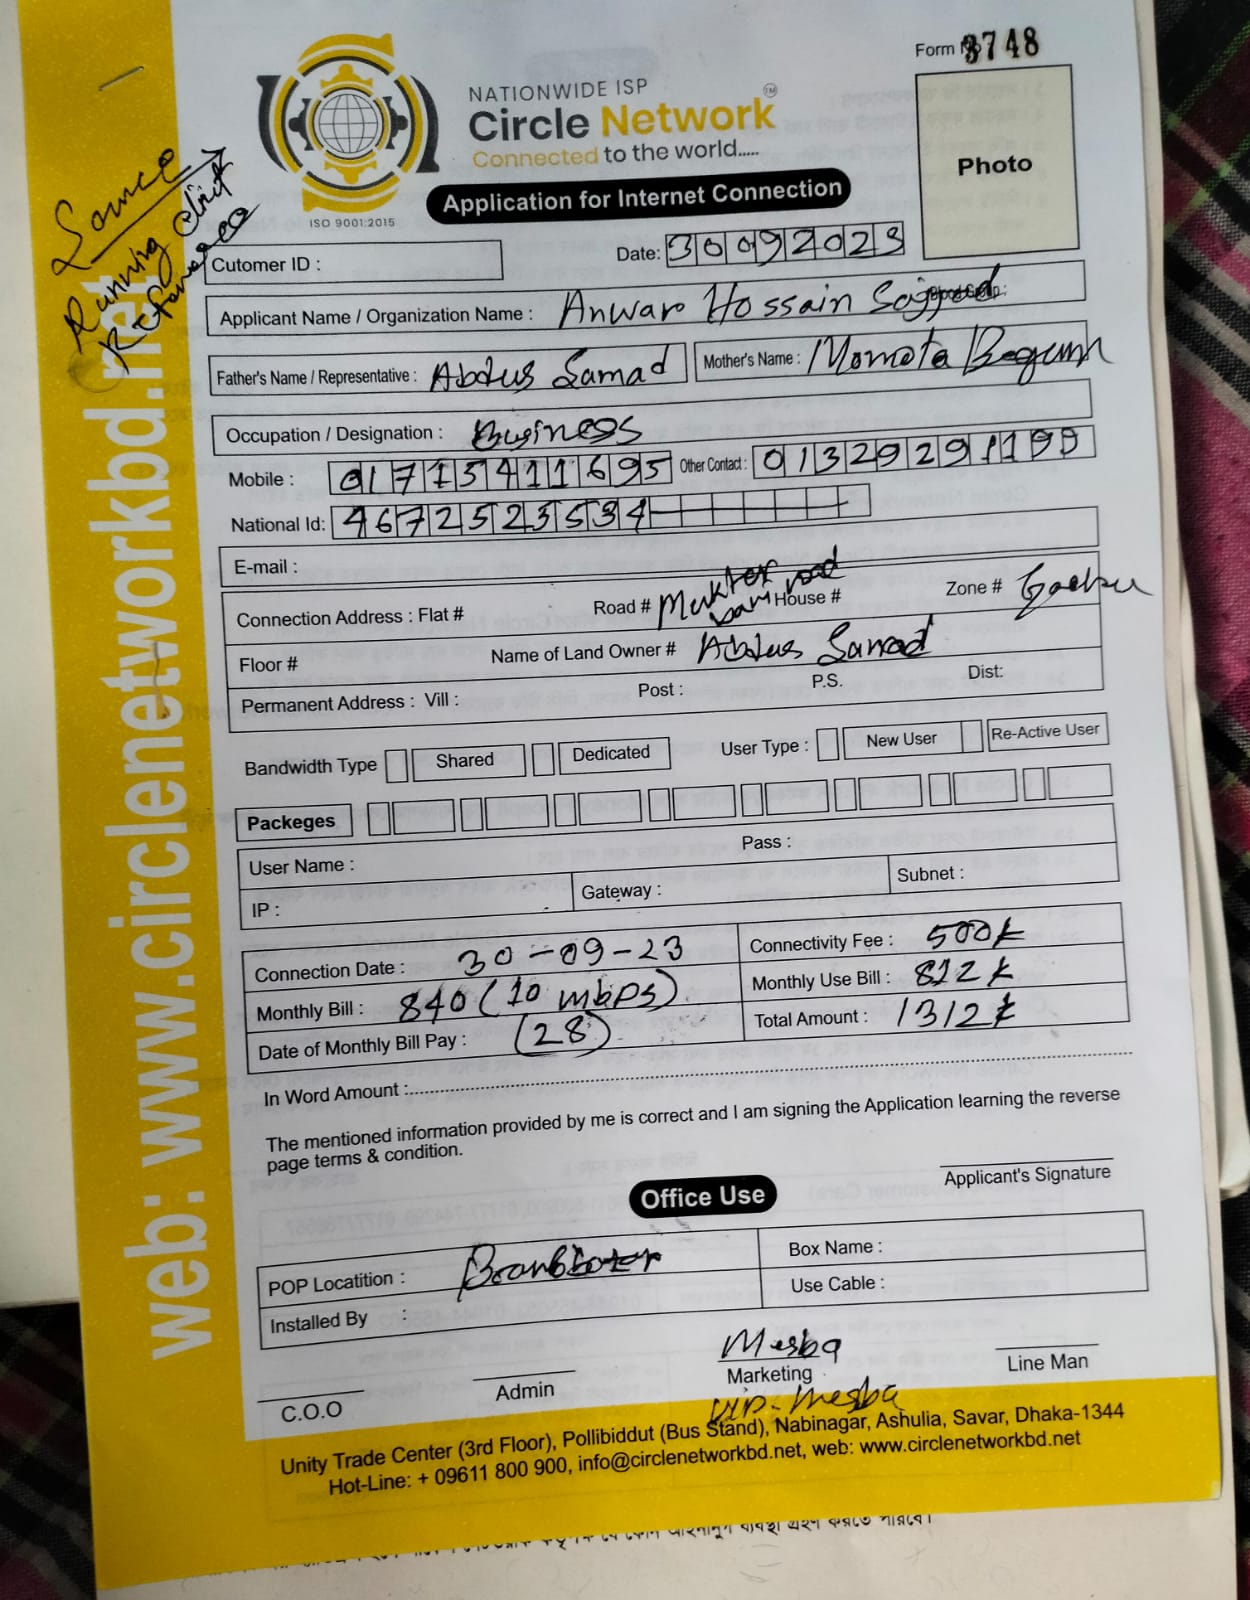 Form No 3748
NATIONWIDE ISP
Circle Network TM
Connected to the world.....
ISO 9001:2015
Photo
Application for Internet Connection
Source
Running client
Reference
Date: 30092023
Cutomer ID :
Applicant Name / Organization Name : Anwar Hossain Sajjad
Father's Name / Representative : Abdus Samad Mother's Name : Momota Begum
Occupation / Designation : Business
Mobile : 01715411695 Other Contact : 01329291199
National Id: 4672523534
E-mail :
Connection Address : Flat # Road # Mukter bari road House # Zone #
Floor # Name of Land Owner # Abdus Samad
Permanent Address : Vill : Post : P.S. Dist:
Bandwidth Type Shared Dedicated User Type : New User Re-Active User
Packeges
User Name : Pass :
IP : Gateway : Subnet :
Connection Date : 30-09-23 Connectivity Fee : 500
Monthly Bill : 840 (10 mbps) Monthly Use Bill : 812
Date of Monthly Bill Pay : (28) Total Amount : 1312
In Word Amount :
The mentioned information provided by me is correct and I am signing the Application learning the reverse
page terms & condition.
Applicant's Signature
Office Use
POP Locatition : Box Name :
Installed By : Use Cable :
Mesba
C.O.O Admin Marketing Line Man
Mesba
Unity Trade Center (3rd Floor), Pollibiddut (Bus Stand), Nabinagar, Ashulia, Savar, Dhaka-1344
Hot-Line: + 09611 800 900, info@circlenetworkbd.net, web: www.circlenetworkbd.net
web: www.circlenetworkbd.net